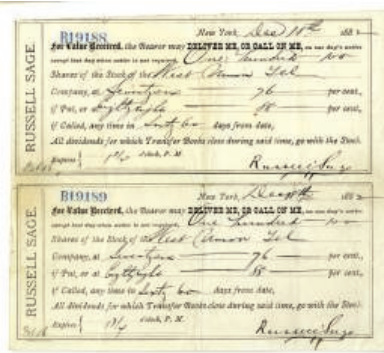 RUSSELL SAGE.
B19188
New York, Dec 18th 188
For Value Received, the Bearer may DELIVER ME, OR CALL ON ME, on one day's notice
except last day when notice is not required, One hundred
Shares of the Stock of the West Union Tel
Company, at 76 per cent.,
if Put, or 88 per cent.,
if Called, any time in Sixty 60 days from date,
All dividends for which Transfer Books close during said time, go with the Stock.
Expires o'clock, P. M.
Russell Sage
RUSSELL SAGE.
B19189
New York, Dec 188
For Value Received, the Bearer may DELIVER ME, OR CALL ON ME, on one day's notice
except last day when notice is not required, One hundred
Shares of the Stock of the West Union Tel
Company, at 76 per cent.,
if Put, or 88 per cent.,
if Called, any time in Sixty 60 days from date,
All dividends for which Transfer Books close during said time, go with the Stock.
Expires o'clock, P. M.
Russell Sage